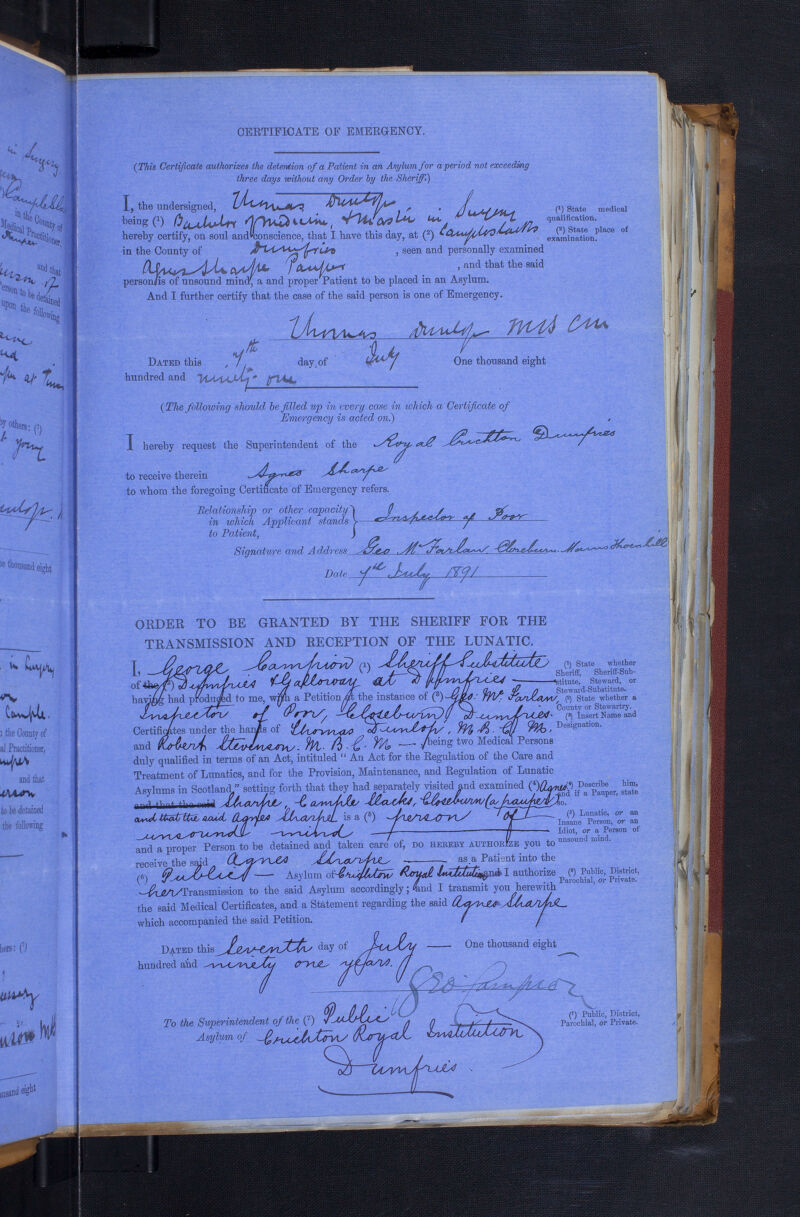 CERTIFICATE OF EMERGENCY.
(This Certificate authorizes the detention of a Patient in an Asylum for a period not exceeding
three days without any Order by the Sheriff.)
I, the undersigned, Thomas Dunlop
being (1) Bachelor of Medicine, & Master in Surgery
(1) State medical
qualification.
hereby certify, on soul and conscience, that I have this day, at (2) Campleslacks
(2) State place of
examination.
in the County of Dumfries , seen and personally examined
Agnes Sharpe Pauper , and that the said
person is of unsound mind, a and proper Patient to be placed in an Asylum.
And I further certify that the case of the said person is one of Emergency.
Thomas Dunlop MB CM
DATED this 7th day of July One thousand eight
hundred and ninety-one
(The following should be filled up in every case in which a Certificate of
Emergency is acted on.)
I hereby request the Superintendent of the Royal Crichton Dumfries
to receive therein Agnes Sharpe
to whom the foregoing Certificate of Emergency refers.
Relationship or other capacity
in which Applicant stands
to Patient,
Inspector of Poor
Signature and Address Geo McFarlan Closeburn Manus Thornhill
Date 7th July 1891
ORDER TO BE GRANTED BY THE SHERIFF FOR THE
TRANSMISSION AND RECEPTION OF THE LUNATIC.
I, George Campion (1) Sheriff Substitute
of Dumfries & Galloway at Dumfries
(1) State whether
Sheriff, Sheriff-Sub-
stitute, Steward, or
Steward-Substitute.
having had produced to me, with a Petition at the instance of (2) Geo. McFarlan
(2) State whether a
County or Stewartry.
Inspector of Poor, Closeburn, Dumfries.
(3) Insert Name and
Designation.
Certificates under the hands of Thomas Dunlop, M.B. C. M.,
and Robert Stevenson, M. B. C. M. being two Medical Persons
duly qualified in terms of an Act, intituled "An Act for the Regulation of the Care and
Treatment of Lunatics, and for the Provision, Maintenance, and Regulation of Lunatic
Asylums in Scotland," setting forth that they had separately visited and examined (4) Agnes
(4) Describe him,
and if a Pauper, state
so.
and that the said Sharpe, Campleslacks, Closeburn (a pauper)
and that the said Agnes Sharpe is a (5) person of
unsound mind
(5) Lunatic, or an
Insane Person, or an
Idiot, or a Person of
unsound mind.
and a proper Person to be detained and taken care of, DO HEREBY AUTHORIZE YOU to
receive the said Agnes Sharpe as a Patient into the
(6) Public Asylum of Crichton Royal Institution and I authorize
(6) Public, District,
Parochial, or Private.
her Transmission to the said Asylum accordingly; and I transmit you herewith
the said Medical Certificates, and a Statement regarding the said Agnes Sharpe
which accompanied the said Petition.
DATED this Seventh day of July One thousand eight
hundred and ninety one years.
Geo. Campion
To the Superintendent of the (7) Public
(7) Public, District,
Parochial, or Private.
Asylum of Crichton Royal Institution
Dumfries.